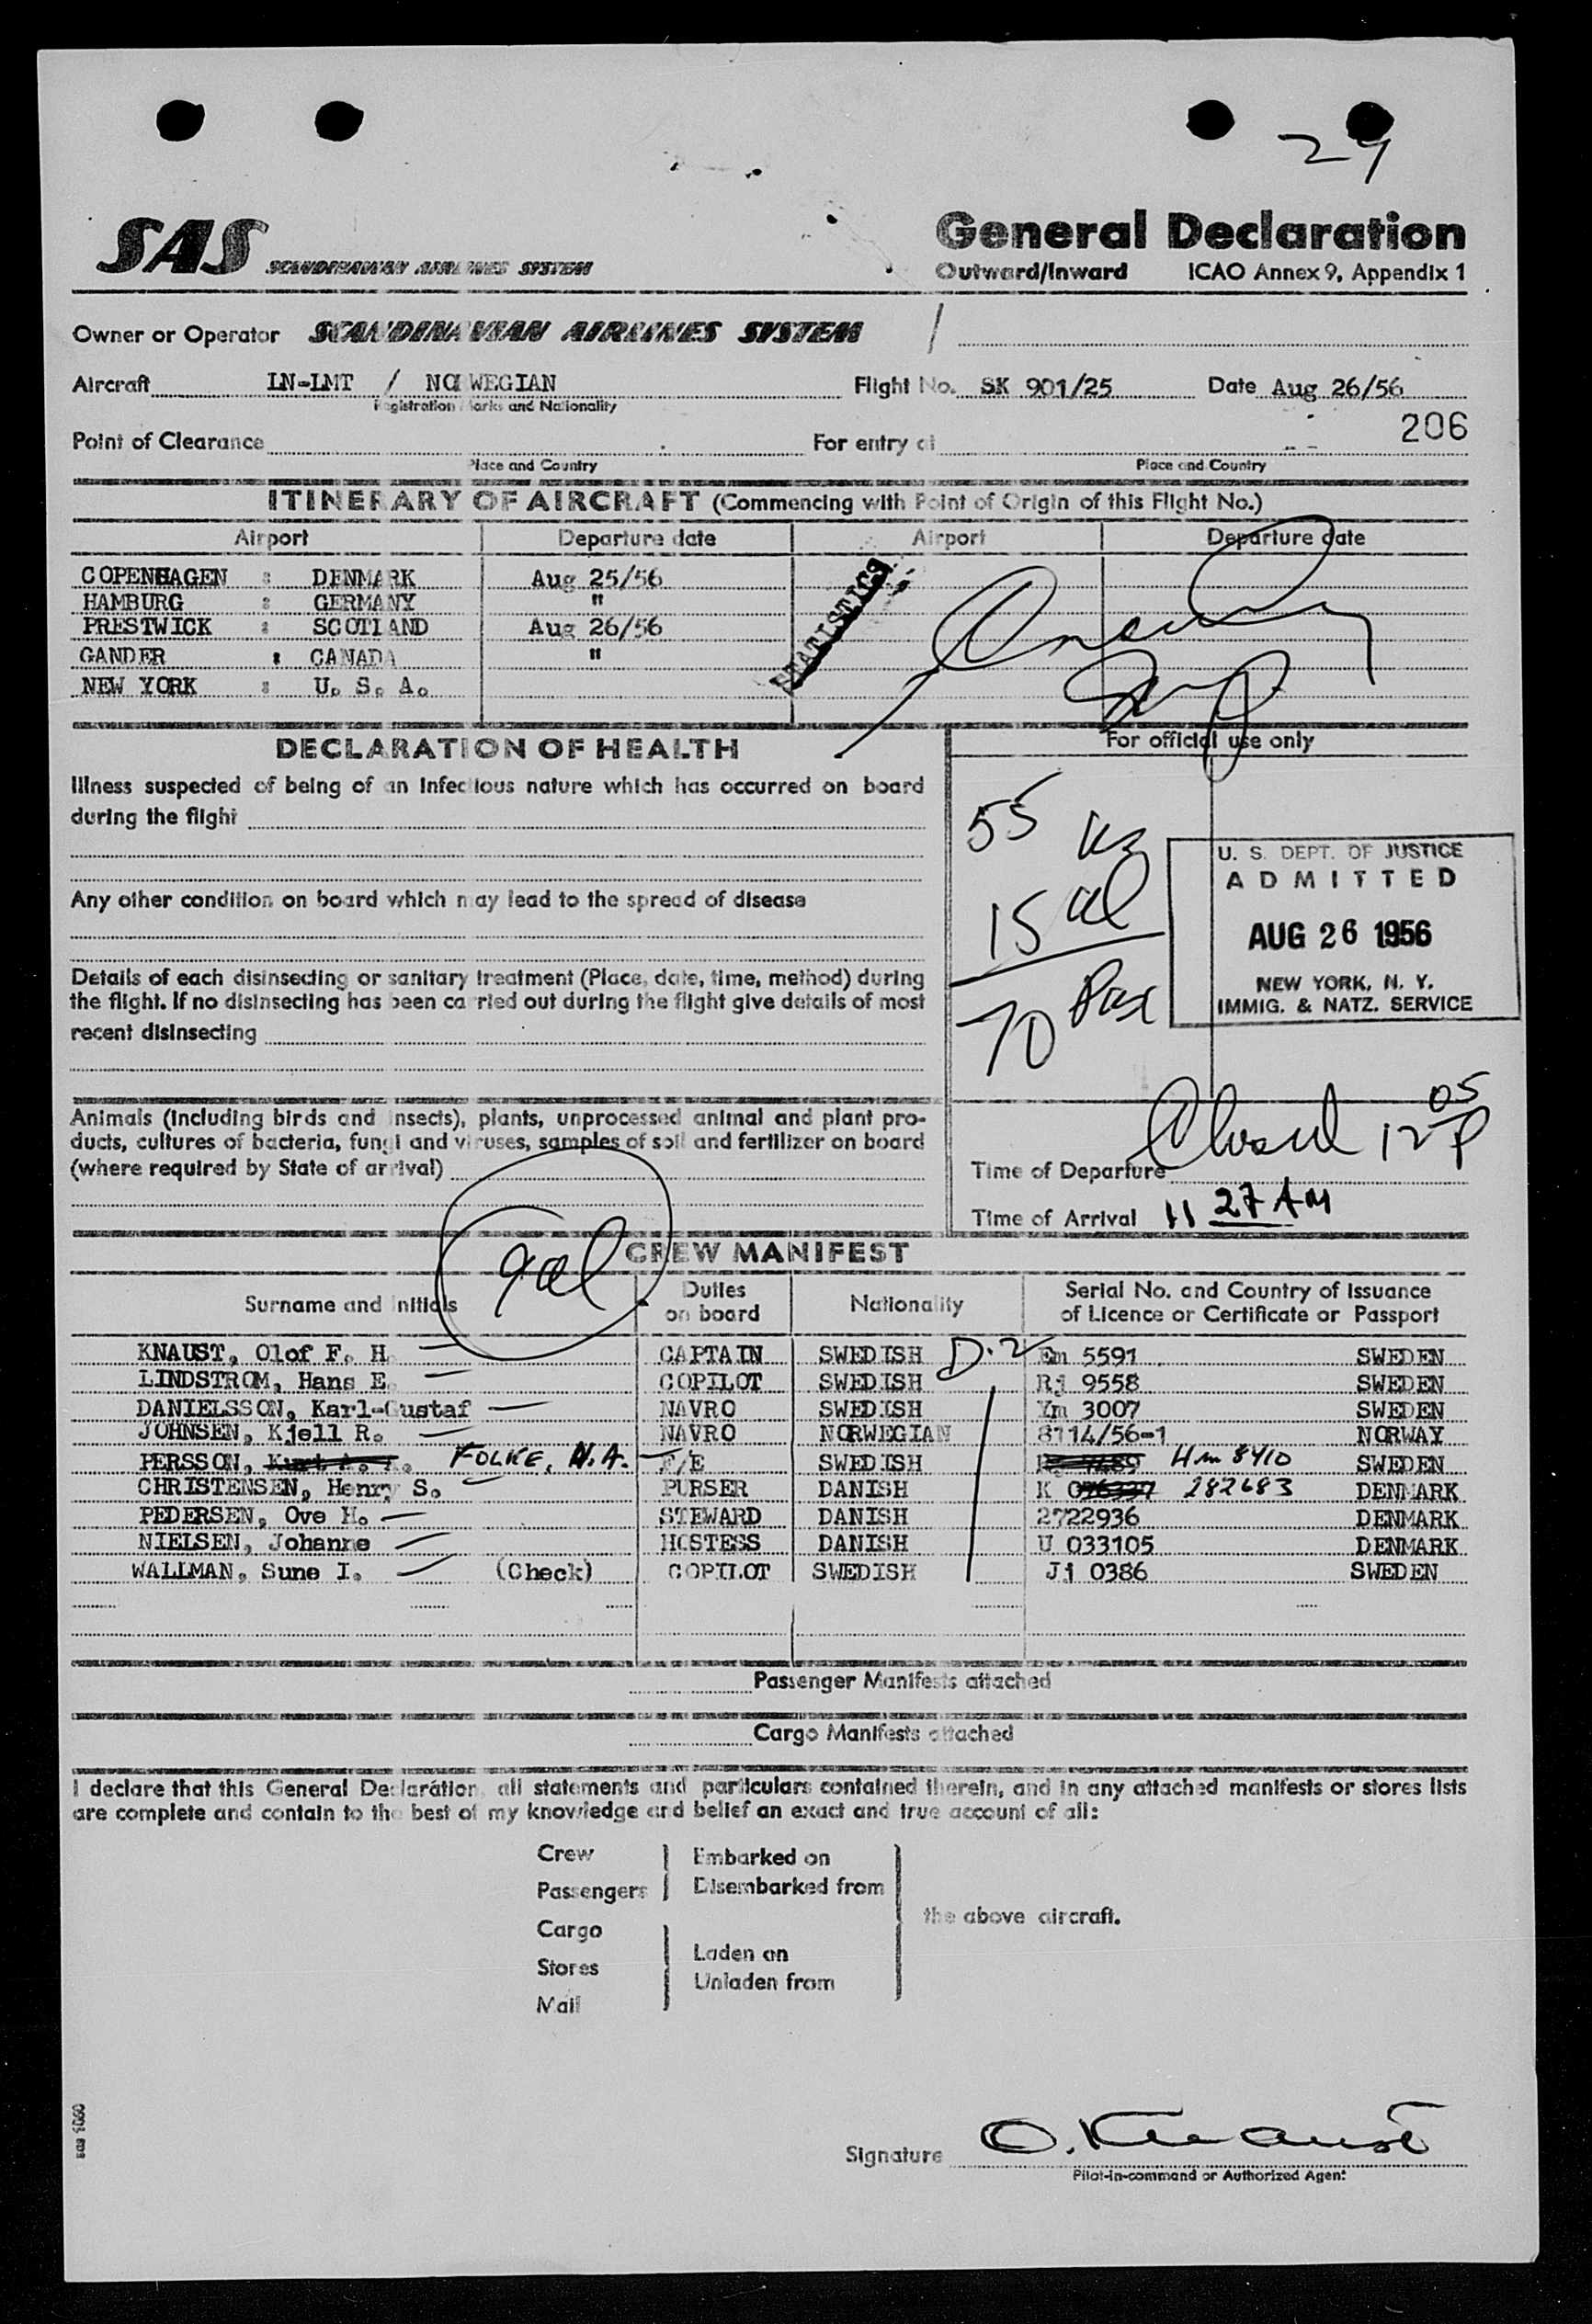 29
SAS SCANDINAVIAN AIRLINES SYSTEM
General Declaration
Outward/Inward ICAO Annex 9, Appendix 1
Owner or Operator SCANDINAVIAN AIRLINES SYSTEM /
Aircraft LN-LMT / NORWEGIAN Flight No. SK 901/25 Date Aug 26/56
Registration Marks and Nationality
206
Point of Clearance For entry at
Place and Country Place and Country
ITINERARY OF AIRCRAFT (Commencing with Point of Origin of this Flight No.)
Airport Departure date Airport Departure date
COPENHAGEN : DENMARK Aug 25/56
HAMBURG : GERMANY "
PRESTWICK : SCOTLAND Aug 26/56
GANDER : CANADA "
NEW YORK : U. S. A.
STATISTICS
DECLARATION OF HEALTH
Illness suspected of being of an infectious nature which has occurred on board
during the flight
Any other condition on board which may lead to the spread of disease
Details of each disinsecting or sanitary treatment (Place, date, time, method) during
the flight. If no disinsecting has been carried out during the flight give details of most
recent disinsecting
Animals (including birds and insects), plants, unprocessed animal and plant pro-
ducts, cultures of bacteria, fungi and viruses, samples of soil and fertilizer on board
(where required by State of arrival)
For official use only
55
15 al
70 Pax
U. S. DEPT. OF JUSTICE
ADMITTED
AUG 26 1956
NEW YORK, N. Y.
IMMIG. & NATZ. SERVICE
Closed 12 05 P
Time of Departure
Time of Arrival 11 27 AM
9 al
CREW MANIFEST
Surname and Initials Duties on board Nationality Serial No. and Country of Issuance of Licence or Certificate or Passport
KNAUST, Olof F. H. CAPTAIN SWEDISH D.2 Em 5591 SWEDEN
LINDSTROM, Hans E. COPILOT SWEDISH Rj 9558 SWEDEN
DANIELSSON, Karl-Gustaf NAVRO SWEDISH Ym 3007 SWEDEN
JOHNSEN, Kjell R. NAVRO NORWEGIAN 8114/56-1 NORWAY
PERSSON, FOLKE, N.A. F/E SWEDISH Hm 8410 SWEDEN
CHRISTENSEN, Henry S. PURSER DANISH K 282683 DENMARK
PEDERSEN, Ove H. STEWARD DANISH 2722936 DENMARK
NIELSEN, Johanne HOSTESS DANISH U 033105 DENMARK
WALLMAN, Sune I. (Check) COPILOT SWEDISH Ji 0386 SWEDEN
Passenger Manifests attached
Cargo Manifests attached
I declare that this General Declaration, all statements and particulars contained therein, and in any attached manifests or stores lists
are complete and contain to the best of my knowledge and belief an exact and true account of all:
Crew
Passengers
Embarked on
Disembarked from
Cargo
Stores
Mail
Laden on
Unladen from
the above aircraft.
Signature O. Knaust
Pilot-in-command or Authorized Agent